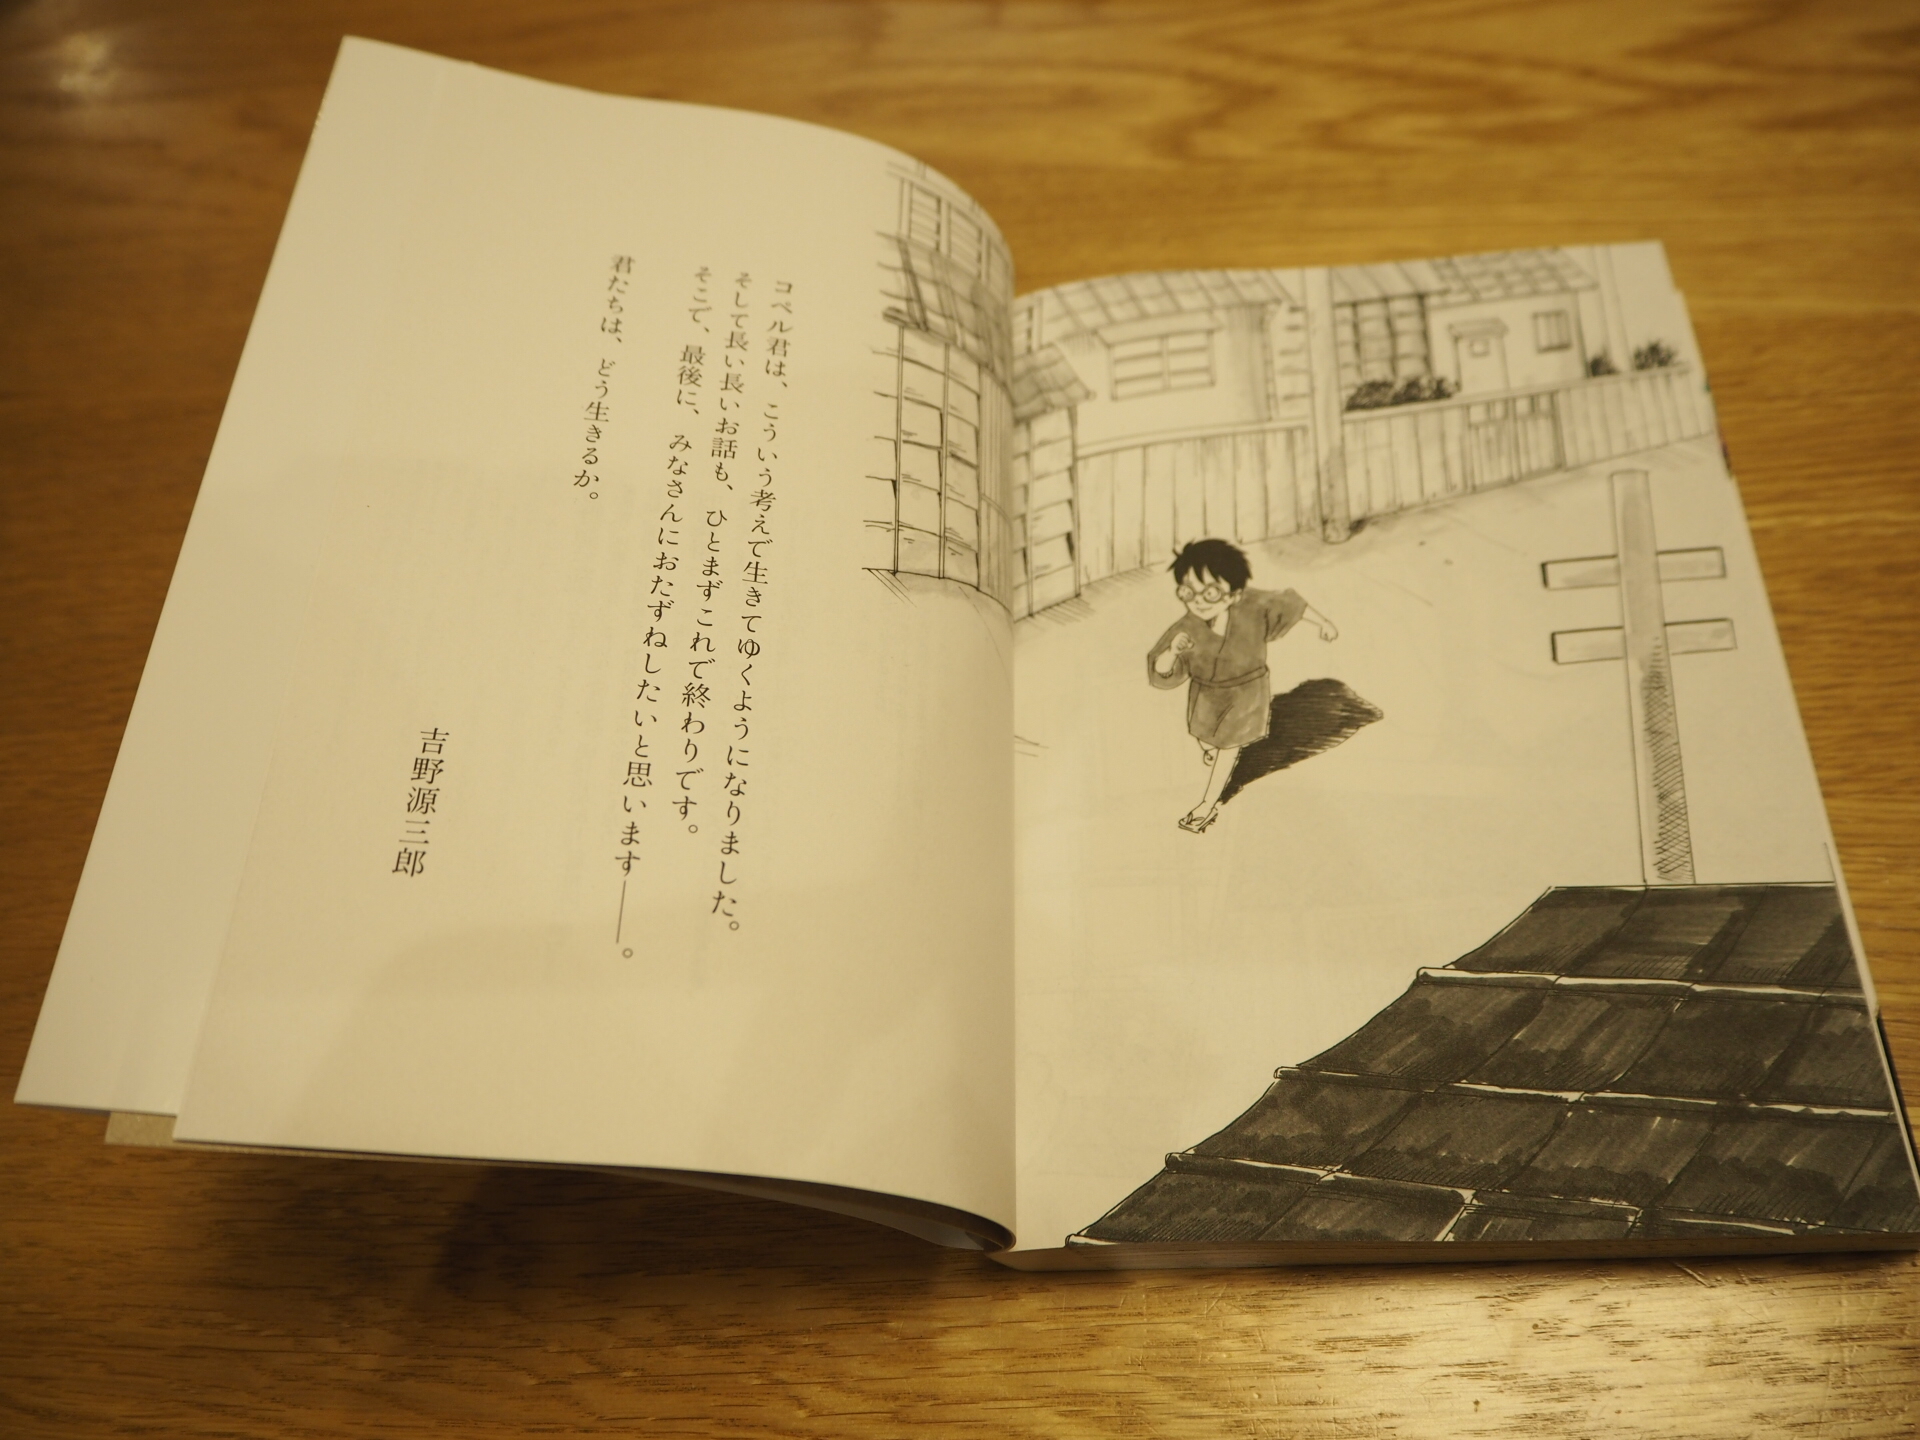 コペル君は、こういう考えで生きてゆくようになりました。
そして長い長いお話も、ひとまずこれで終わりです。
そこで、最後に、みなさんにおたずねしたいと思います――。
君たちは、どう生きるか。
吉野源三郎